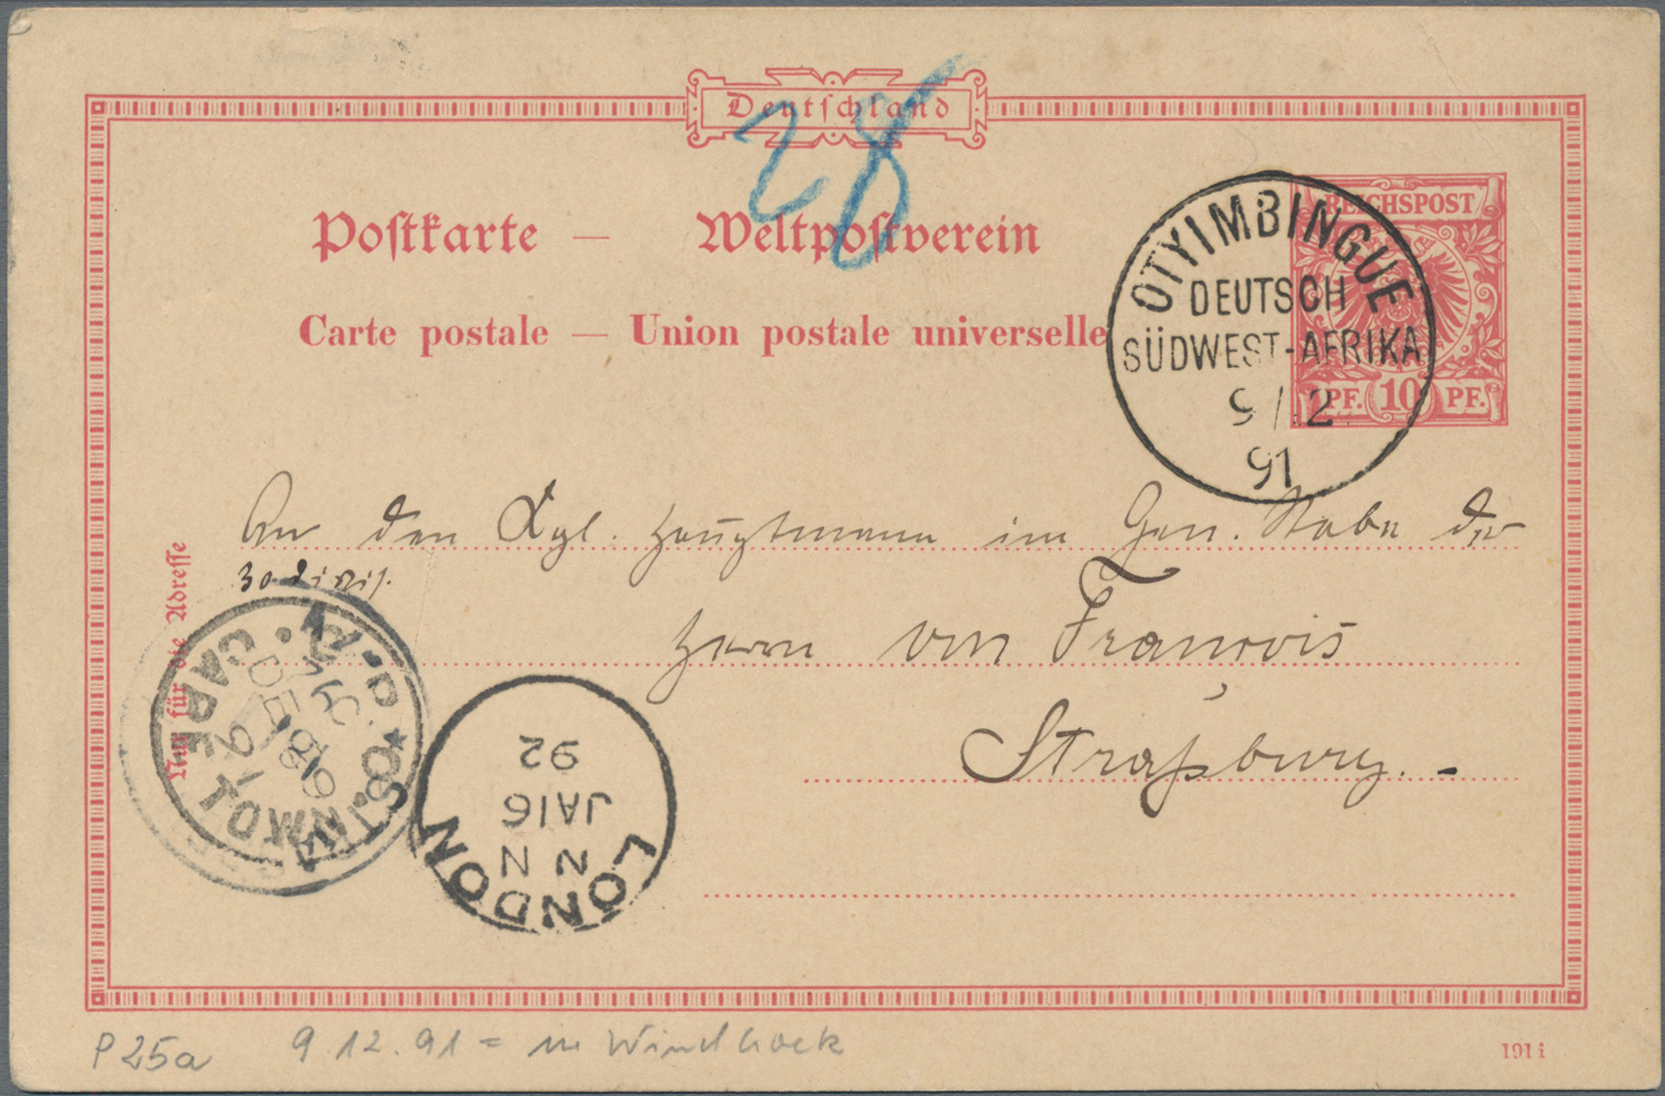 Deutſchland
28
Poſtkarte — Weltpoſtverein
Carte postale — Union postale universelle
REICHSPOST
PF. 10 PF.
OTYIMBINGUE
DEUTSCH
SÜDWEST-AFRIKA
9/12
91
An den Kgl. Hauptmann im Gen. Stabe der
30 Divis.
Herrn von François
Straßburg. -
Nur für die Adreſſe
CAPE TOWN
DE 18
91
LONDON
N N
JA 16
92
P 25a
9 12.91 = in Windhoek
191 i